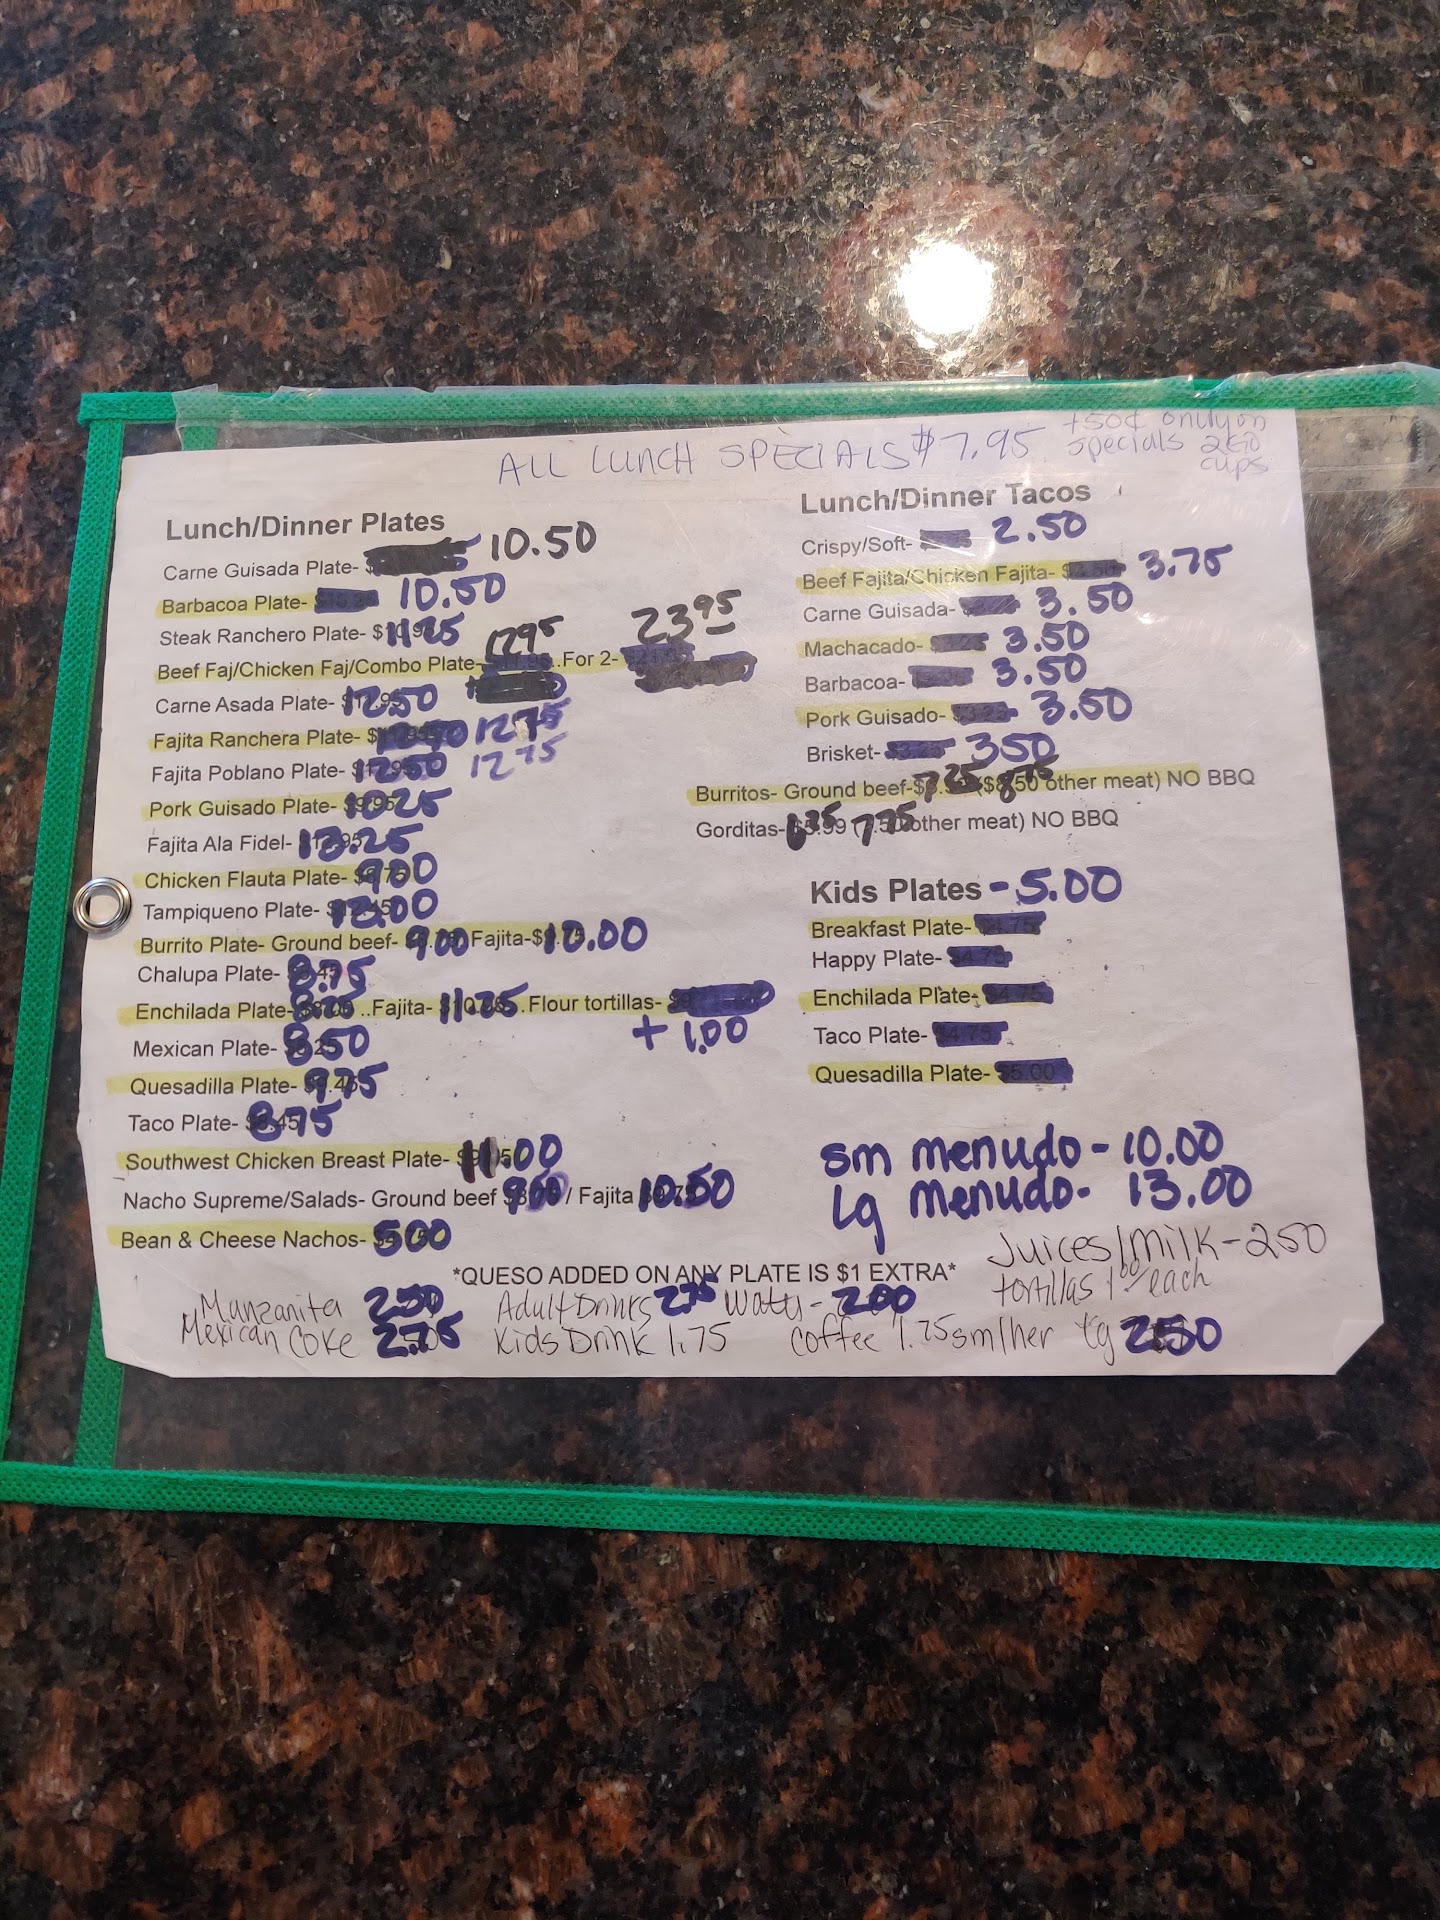 ALL LUNCH SPECIALS $7.95
+50¢ only on
specials 2GO
cups
Lunch/Dinner Plates
Carne Guisada Plate- 10.50
Barbacoa Plate- 10.50
Steak Ranchero Plate- $11.25
Beef Faj/Chicken Faj/Combo Plate- 12.95 ..For 2- 23.95
Carne Asada Plate- 12.50
Fajita Ranchera Plate- 12.75
Fajita Poblano Plate- 12.50 12.75
Pork Guisado Plate- 10.25
Fajita Ala Fidel- 13.25
Chicken Flauta Plate- 9.00
Tampiqueno Plate- 13.00
Burrito Plate- Ground beef- 9.00 Fajita-$10.00
Chalupa Plate- 8.75
Enchilada Plate- ..Fajita- 11.25 .Flour tortillas-
+ 1.00
Mexican Plate- 8.50
Quesadilla Plate- 9.75
Taco Plate- 8.75
Southwest Chicken Breast Plate- 11.00
Nacho Supreme/Salads- Ground beef 9.00 / Fajita 10.50
Bean & Cheese Nachos- 5.00
*QUESO ADDED ON ANY PLATE IS $1 EXTRA*
Lunch/Dinner Tacos
Crispy/Soft- 2.50
Beef Fajita/Chicken Fajita- 3.75
Carne Guisada- 3.50
Machacado- 3.50
Barbacoa- 3.50
Pork Guisado- 3.50
Brisket- 3.50
Burritos- Ground beef-$7.25 ($8.75 other meat) NO BBQ
Gorditas- 6.25 (7.75 other meat) NO BBQ
Kids Plates - 5.00
Breakfast Plate-
Happy Plate-
Enchilada Plate-
Taco Plate-
Quesadilla Plate-
sm menudo - 10.00
Lg menudo- 13.00
Juices/milk - 250
tortillas 1.00/each
Manzanita 2.50 Adult Drinks 2.75 - 2.00
Mexican Coke 2.75 Kids Drink 1.75 coffee 1.75 sm/her Lg 2.50